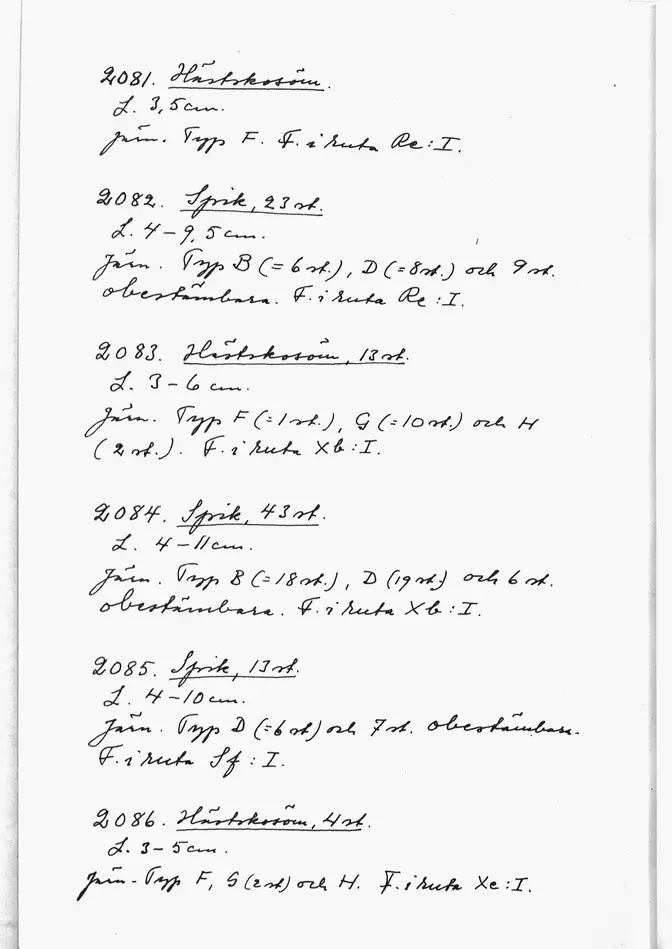 2081. Hästskosöm.
L. 3,5 cm.
Järn. Typ F. F. i ruta Re : I.
2082. Spik, 23 st.
L. 4 – 9,5 cm.
Järn. Typ B (= 6 st.), D (= 8 st.) och 9 st.
obestämbara. F. i ruta Re : I.
2083. Hästskosöm, 13 st.
L. 3 – 6 cm.
Järn. Typ F (= 1 st.), G (= 10 st.) och H
(2 st.). F. i ruta Xb : I.
2084. Spik, 43 st.
L. 4 – 11 cm.
Järn. Typ B (= 18 st.), D (19 st.) och 6 st.
obestämbara. F. i ruta Xb : I.
2085. Spik, 13 st.
L. 4 – 10 cm.
Järn. Typ D (= 6 st) och 7 st. obestämbara.
F. i ruta Sf : I.
2086. Hästskosöm, 4 st.
L. 3 – 5 cm.
Järn. Typ F, G (2 st) och H. F. i ruta Xc : I.